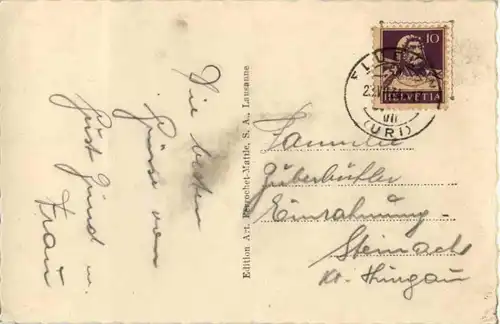 Die besten
Grüsse von
Gust Gmür u.
Frau
Edition Art. Perrochet-Matile, S. A., Lausanne
10
HELVETIA
FLÜELEN
VII
(URI)
Familie
Einrahmung-
Steinach
Kt. Thurgau